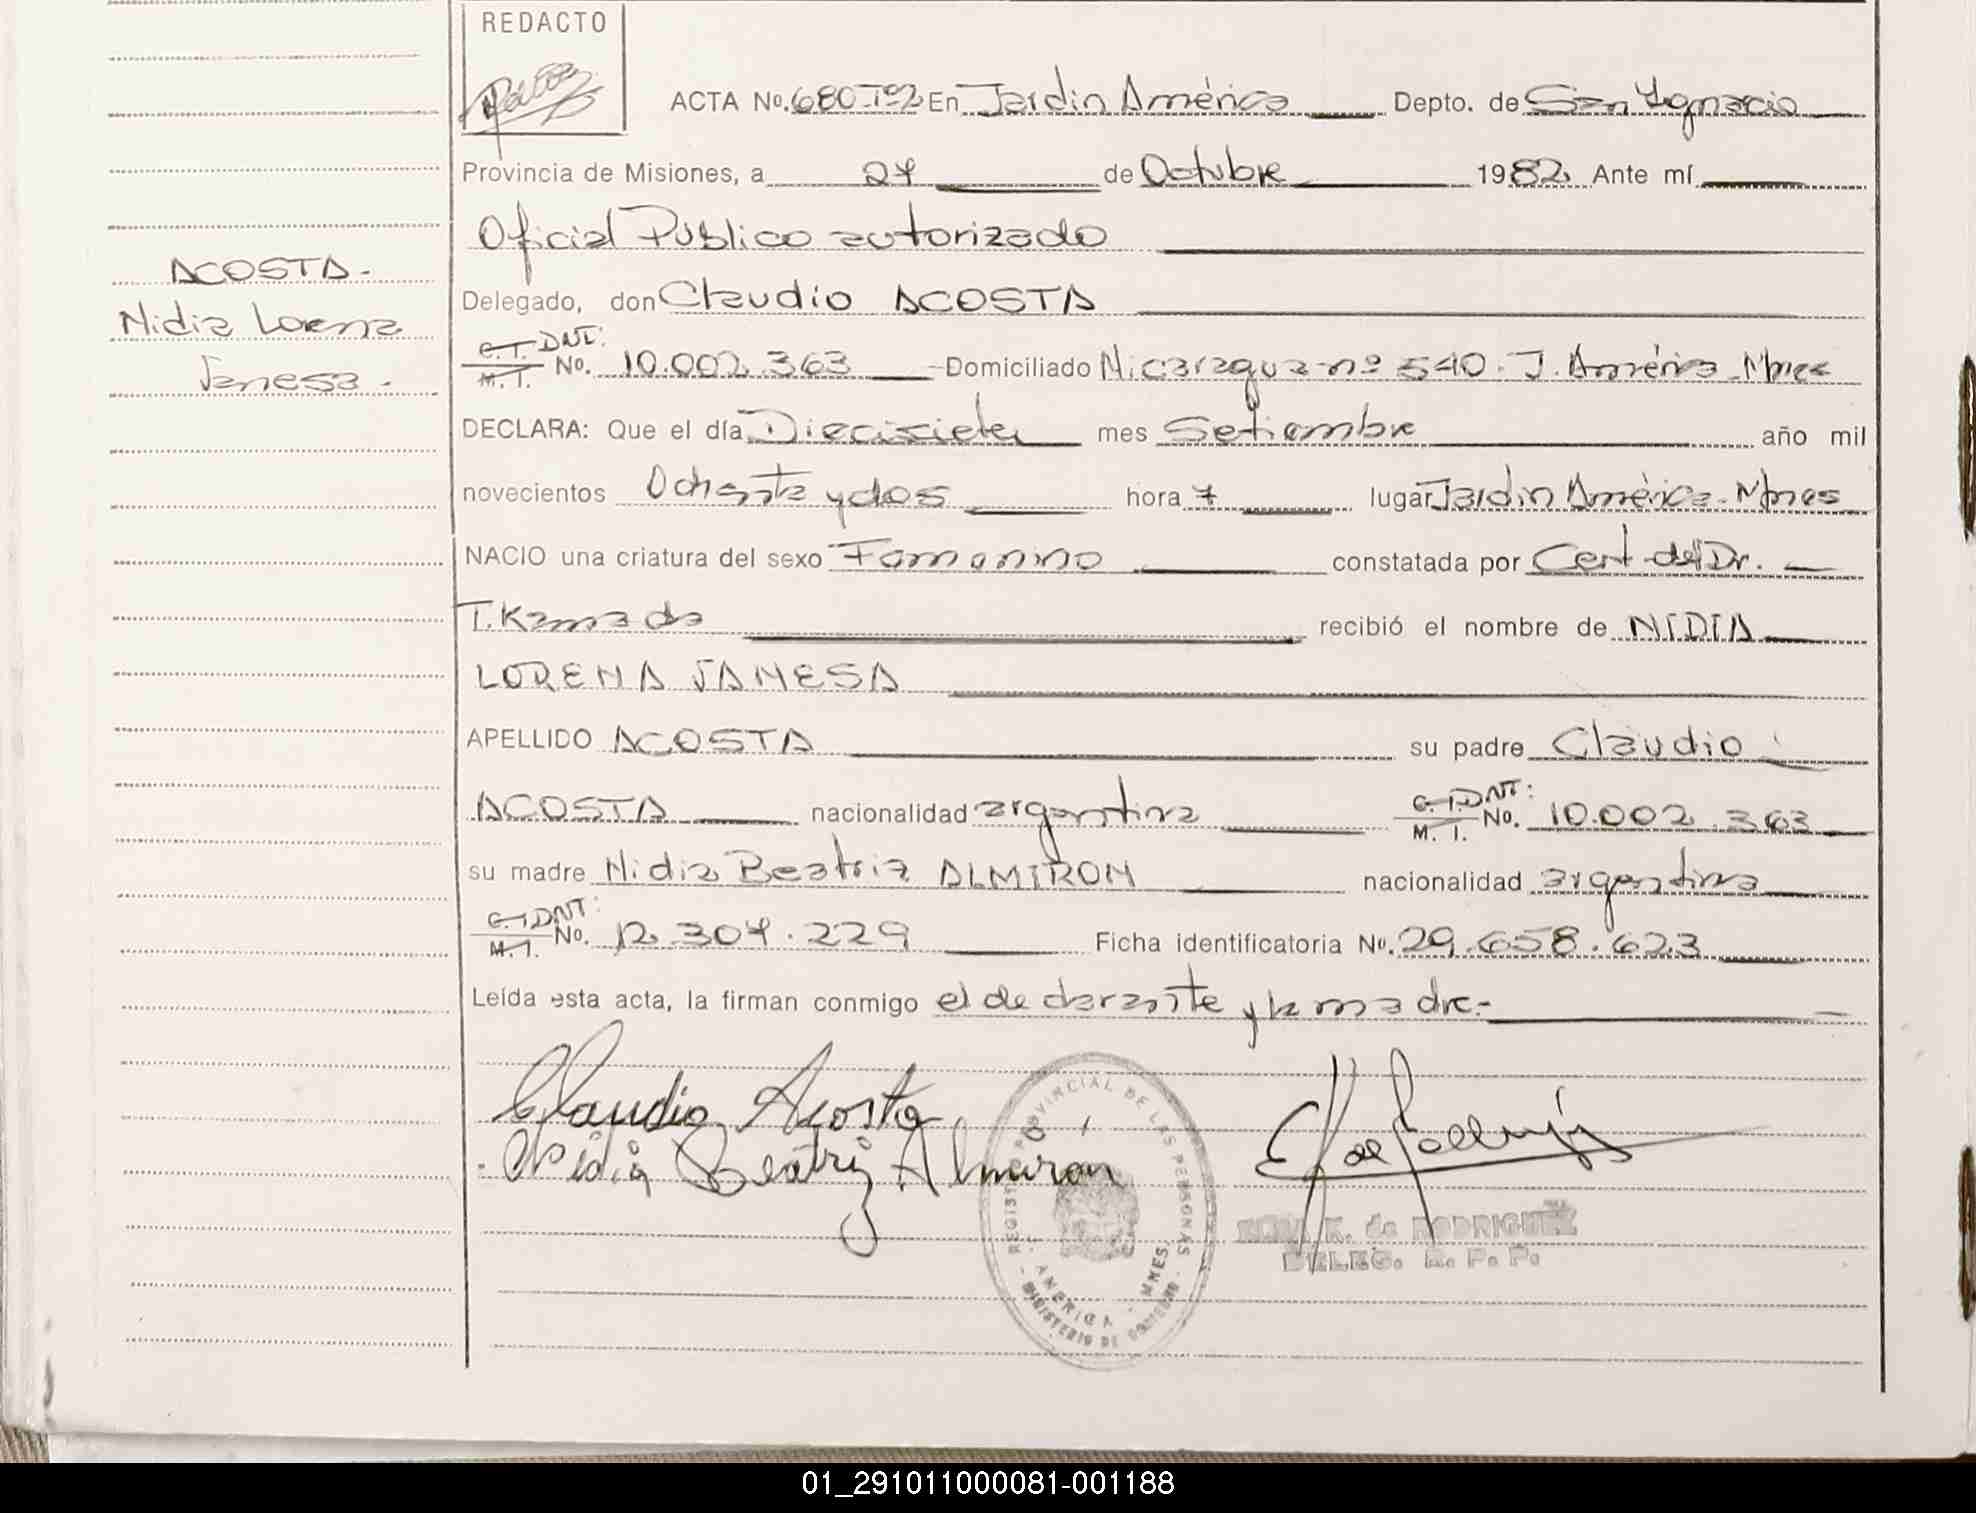 REDACTO
ACTA No. 680 Tº2 En Jardin América Depto. de San Ygnacio
Provincia de Misiones, a 27 de Octubre 1982 Ante mí
Oficial Público autorizado
ACOSTA.-
Delegado, don Claudio ACOSTA
Nidia Lorena
C.I. DNI:
M.I. No. 10.002.363 Domiciliado Nicaragua nº 540. J. América Mnes
Janesa.-
DECLARA: Que el día Diecisiete mes Setiembre año mil
novecientos Ochenta y dos hora 7 lugar Jardin América-Mnes
NACIO una criatura del sexo Femenino constatada por Cert del Dr.
T. Kamada recibió el nombre de NIDIA
LORENA JANESA
APELLIDO ACOSTA su padre Claudio
ACOSTA nacionalidad argentina C.I. DNI: M.I. No. 10.002.363
su madre Nidia Beatriz ALMIRON nacionalidad argentina
C.I. DNI: M.I. No. 12.304.229 Ficha identificatoria No. 29.658.623
Leída esta acta, la firman conmigo el declarante y la madre.-
Claudio Acosta
Nidia Beatriz Almiron
REGISTRO PROVINCIAL DE LAS PERSONAS
AMERICA - MNES.
MINISTERIO DE GOBIERNO
K. de RODRIGUEZ
DELEG. R. P. P.
01_291011000081-001188